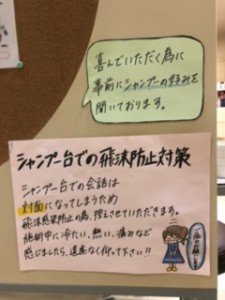 喜んでいただく為に
事前にシャンプーの好みを
聞いております。
シャンプー台での飛沫防止対策
シャンプー台での会話は
対面になってしまうため
飛沫感染防止の為、控えさせていただきます。
施術中に冷たい、熱い、痛みなど
感じましたら、遠慮なく仰って下さい!!